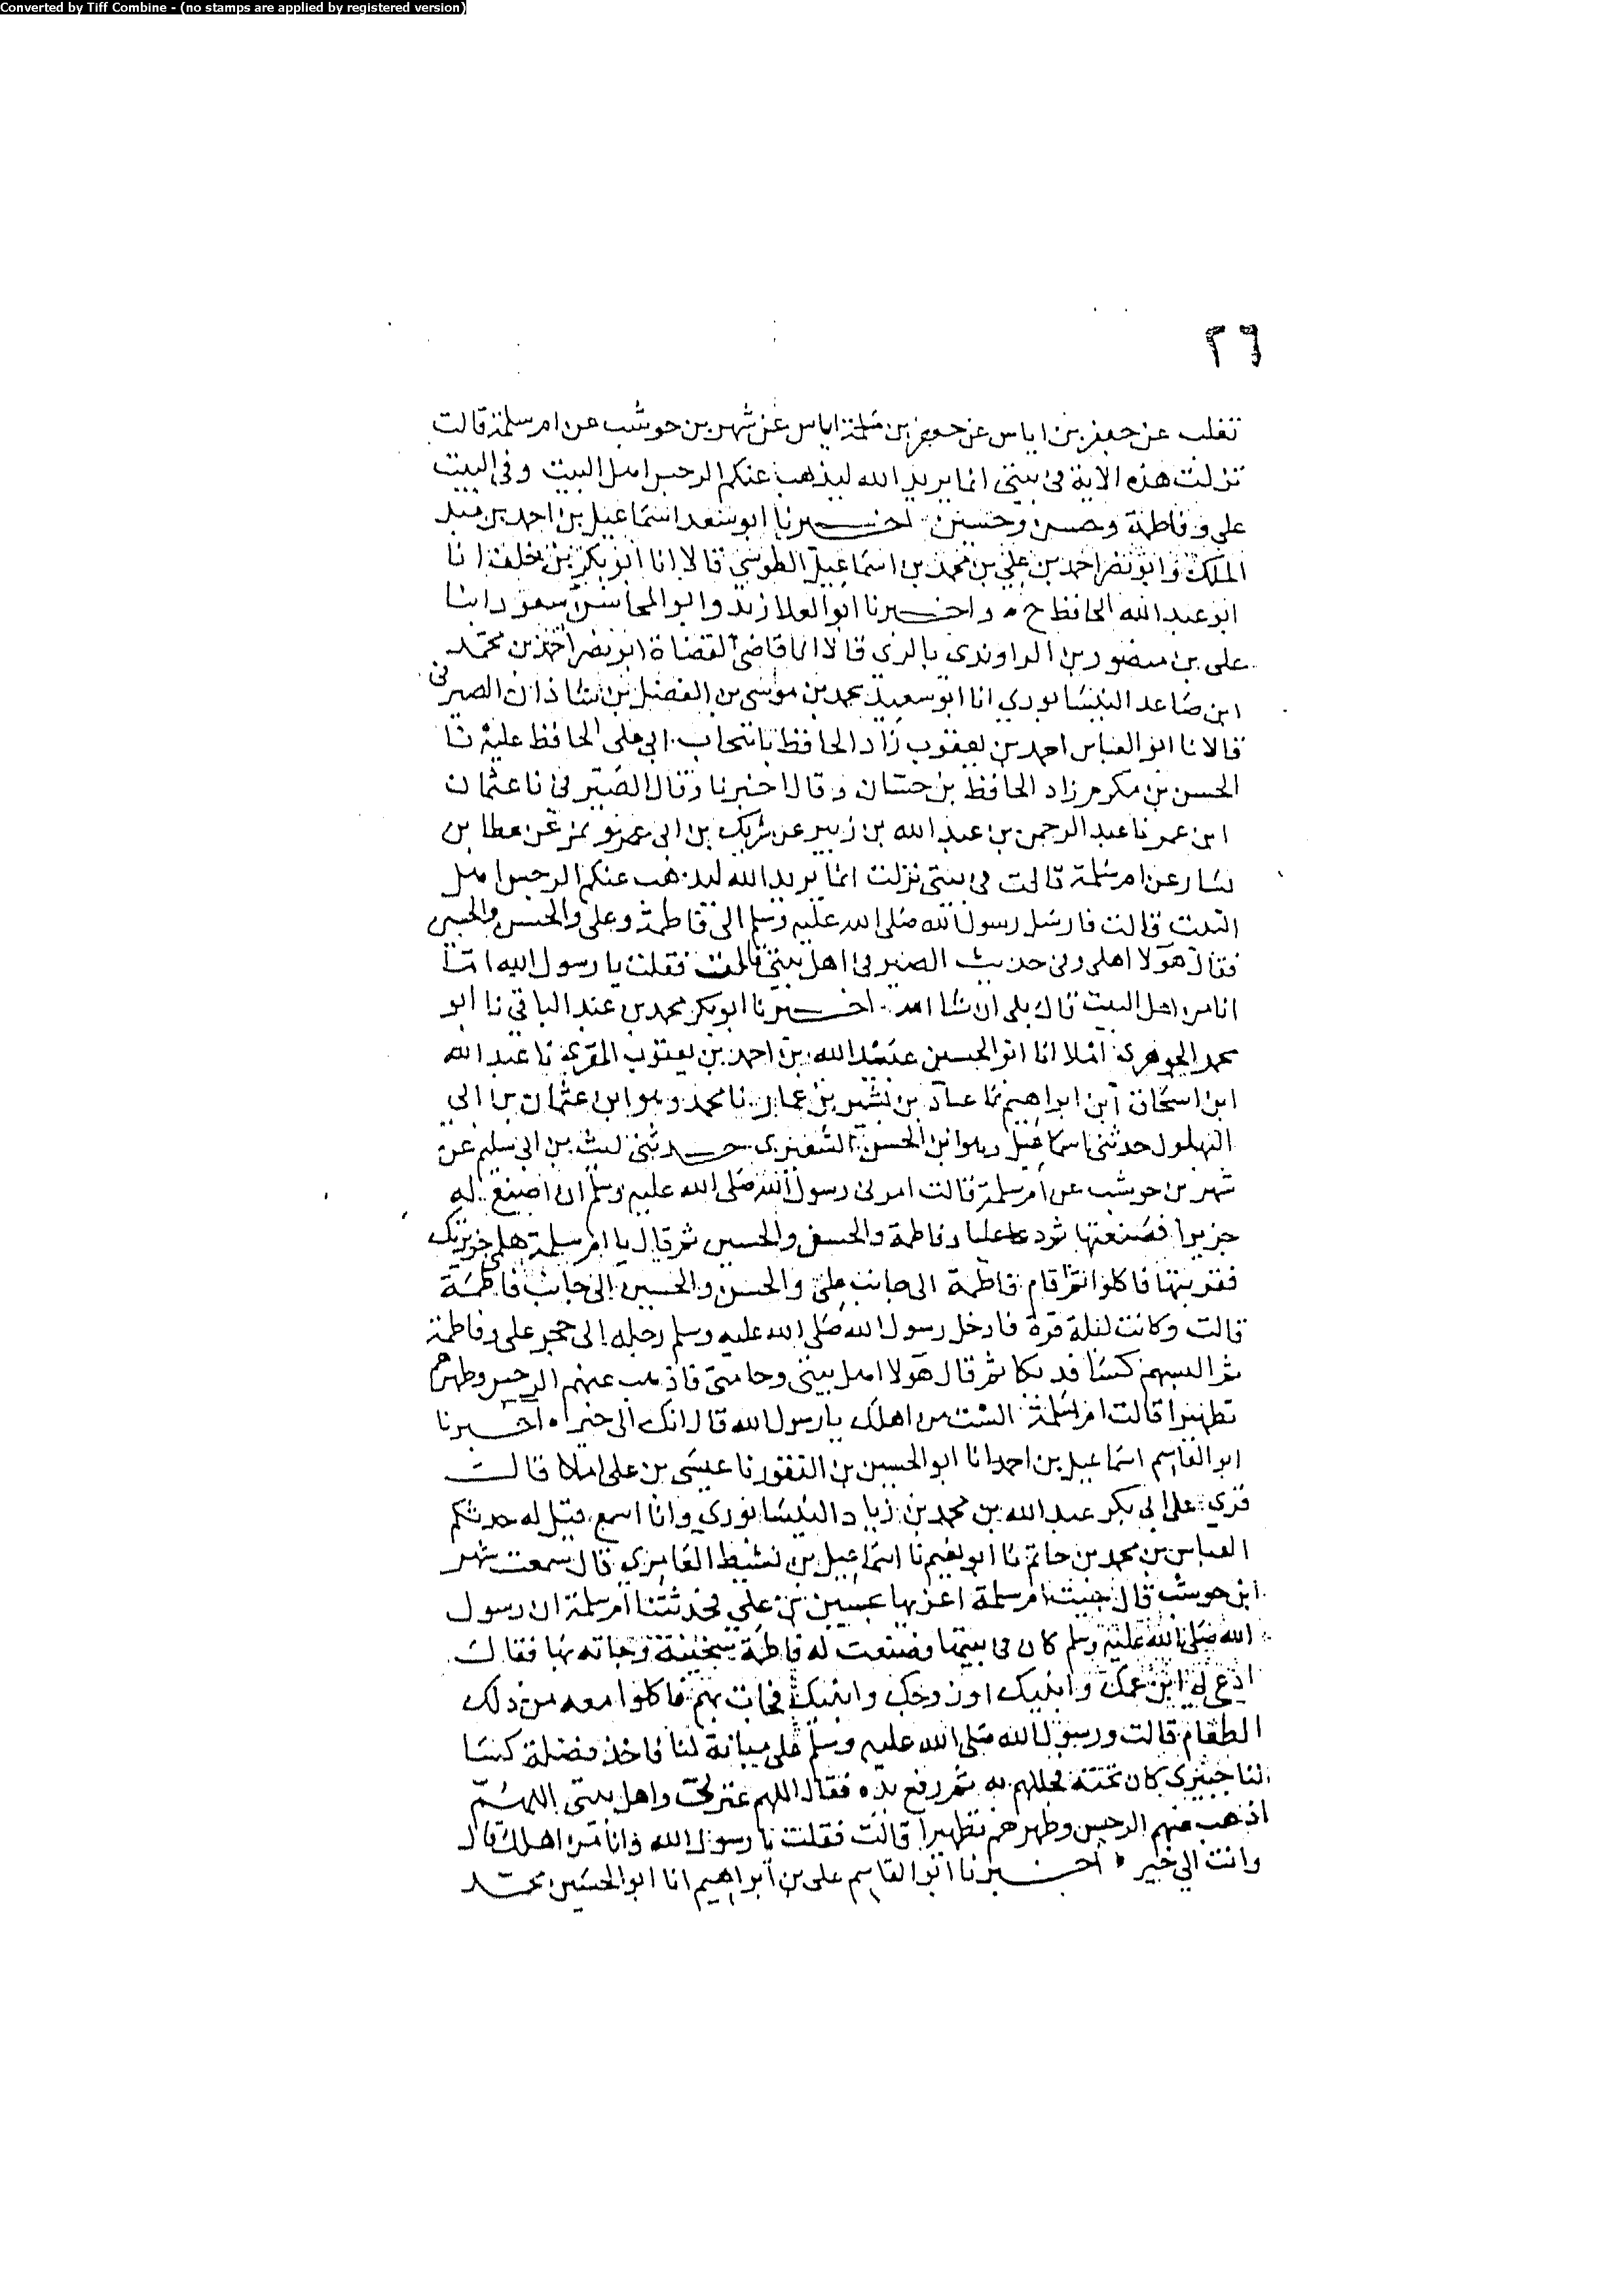 Converted by Tiff Combine - (no stamps are applied by registered version)
٢٦
تغلب عن جعفر بن اياس عن جعفر بن اياس عن شهر بن حوشب عن ام سلمة قالت
نزلت هذه الاية في بيتي انما يريد الله ليذهب عنكم الرجس اهل البيت وفي البيت
علي وفاطمة وحسن وحسين اخبرنا ابو سعد اسماعيل بن احمد بن عبد
الملك وابو نصر احمد بن علي بن محمد بن اسماعيل الطوسي قالا انا ابو بكر بن خلف انا
ابو عبد الله الحافظ ح واخبرنا ابو العلا زيد وابو المحاسن مسعود ابنا
علي بن منصور بن الراوندي بالري قالا انا قاضي القضاة ابو نصر احمد بن محمد
ابن صاعد النيسابوري انا ابو سعيد محمد بن موسى بن الفضل بن شاذان الصيرفي
قالا نا ابو العباس احمد بن يعقوب زاد الحافظ بانتخاب ابي علي الحافظ عليه نا
الحسن بن مكرم زاد الحافظ بن حسان وقالا خبرنا وقال الصيرفي نا عثمان
ابن عمر نا عبد الرحمن بن عبد الله بن زبير عن شريك بن ابي نمر عن عطا بن
يسار عن ام سلمة قالت في بيتي نزلت انما يريد الله ليذهب عنكم الرجس اهل
البيت قالت فارسل رسول الله صلى الله عليه وسلم الى فاطمة وعلي والحسن والحسين
فقال هولا اهلي وفي حديث الصيرفي اهل بيتي قالت فقلت يا رسول الله اما
انا من اهل البيت قال بلى ان شا الله اخبرنا ابو بكر محمد بن عبد الباقي نا ابو
محمد الجوهري املا انا ابو الحسين عبيد الله بن احمد بن يعقوب المقري نا عبد الله
ابن اسحاق ابن ابراهيم نا عباد بن بشير بن عمار نا محمد وهو ابن عثمان بن ابي
البهلول حدثني اسماعيل وهو ابن الحسن الشعيري حدثني ليث بن ابي سليم عن
شهر بن حوشب عن ام سلمة قالت امرني رسول الله صلى الله عليه وسلم ان اصنع له
خزيرا فصنعتها ثم دعا عليا وفاطمة والحسن والحسين ثم قال يا ام سلمة هلمي خزيرتك
فقربتها فاكلوا ثم اقام فاطمة الى جانب علي والحسن والحسين الى جانب فاطمة
قالت وكانت ليلة قرة فادخل رسول الله صلى الله عليه وسلم رجله الى حجر علي وفاطمة
ثم البسهم كسا فدكيا ثم قال هولا اهل بيتي وحامتي فاذهب عنهم الرجس وطهرهم
تطهيرا قالت ام سلمة الست من اهلك يا رسول الله قال انك الى خير اخبرنا
ابو القاسم اسماعيل بن احمد انا ابو الحسين بن النقور نا عيسى بن علي املا قالت
قري على ابي بكر عبد الله بن محمد بن زياد النيسابوري وانا اسمع قيل له حدثكم
العباس بن محمد بن حاتم نا ابو نعيم نا اسماعيل بن نشيط العامري قال سمعت شهر
ابن حوشب قال جيت ام سلمة اعزيها بحسين بن علي فحدثتنا ام سلمة ان رسول
الله صلى الله عليه وسلم كان في بيتها فصنعت له فاطمة سخينة وجاته بها فقال
ادعي لي ابن عمك وابنيك او زوجك وابنيك فجات بهم فاكلوا معه من ذلك
الطعام قالت ورسول الله صلى الله عليه وسلم على منامة لنا فاخذ فضلة كسا
لنا خيبري كان تحته فجللهم به ثم رفع يده فقال اللهم عترتي واهل بيتي اللهم
اذهب عنهم الرجس وطهرهم تطهيرا قالت فقلت يا رسول الله وانا من اهلك قال
وانت الى خير اخبرنا ابو القاسم علي بن ابراهيم انا ابو الحسين محمد